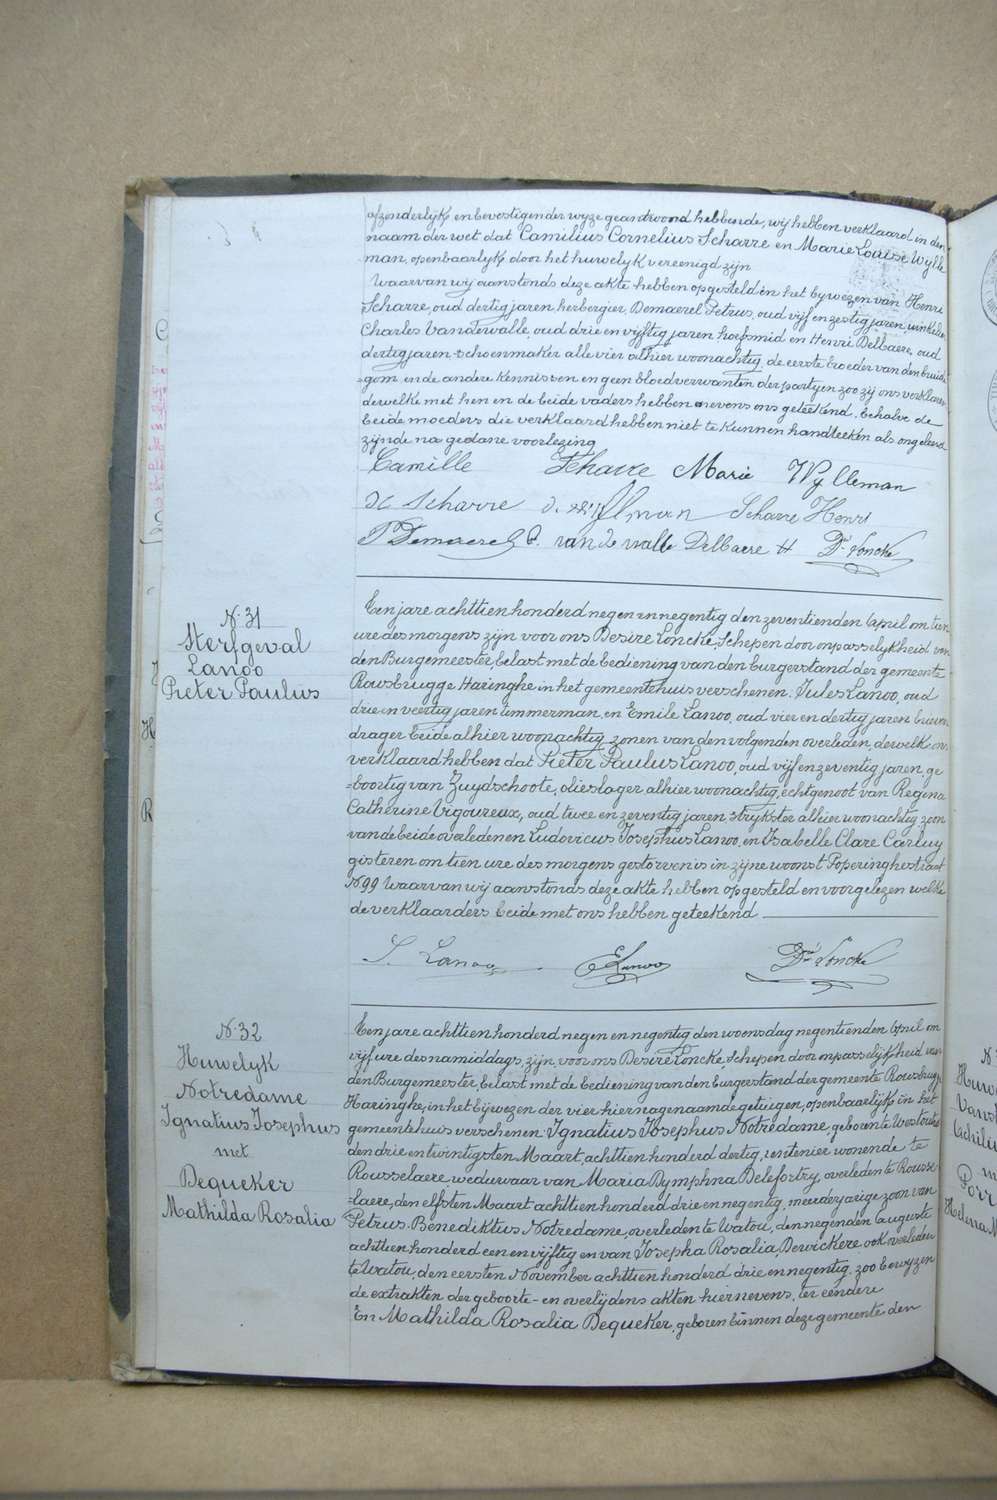 afzonderlyk en bevestigender wyze geantwoord hebbende, wij hebben verklaard in den
naam der wet dat Camilius Cornelius Scharre en Marie Louise Wylle
man, openbaarlyk door het huwelyk vereenigd zijn
Waarvan wij aanstonds deze akte hebben opgesteld in het bywezen van Henri
Scharre, oud dertig jaren, herbergier, Demaerel Petrus, oud vijf en zestig jaren, winkelier
Charles Vandewalle, oud drie en vyftig jaren hoefsmid en Henri Delbaere, oud
dertig jaren schoenmaker alle vier alhier woonachtig, de eerste broeder van den bruide
gom en de andere kennissen en geen bloedverwanten der partyen zoo zij ons verklaren
dewelke met hen en de beide vaders hebben nevens ons geteekend, behalve de
beide moeders die verklaard hebben niet te kunnen handteeken als ongeleerd
zijnde na gedane voorlezing
Camille Scharre Marie Wylleman
Scharre Scharre Henri
P Demaerel C. van de walle Delbaere H Dré Loncke
N. 31
Sterfgeval
Lanoo
Pieter Paulus
Een jare achttien honderd negen en negentig den zeventienden April om tien
ure des morgens zijn voor ons Desiré Loncke, Schepen door onpasselykheid van
den Burgemeester, belast met de bediening van den burgerstand der gemeente
Rousbrugge Haringhe in het gemeentehuis verschenen Jules Lanoo, oud
drie en veertig jaren timmerman, en Emile Lanoo, oud vier en dertig jaren brieven
drager beide alhier woonachtig zonen van den volgenden overleden, dewelk ons
verklaard hebben dat Pieter Paulus Lanoo, oud vijf en zeventig jaren, ge
=boortig van Zuydschoote, olieslager alhier woonachtig, echtgenoot van Regina
Catherine Vigoureux, oud twee en zeventig jaren strykster alhier woonachtig zoon
van de beide overledenen Ludovicus Josephus Lanoo, en Isabelle Clare Carluy
gisteren om tien ure des morgens gestorven is in zijne woonst Poperinghestraat
N 99 Waarvan wij aanstonds deze akte hebben opgesteld en voorgelezen welke
de verklaarders beide met ons hebben geteekend
J. Lanoo E Lanoo Dré Loncke
N. 32
Huwelyk
Notredame
Ignatius Josephus
met
Dequeker
Mathilda Rosalia
Een jare achttien honderd negen en negentig den woensdag negentienden April om
vijf ure des namiddags, zijn voor ons Desiré Loncke, Schepen door onpasselijkheid van
den Burgemeester, belast met de bediening van den Burgerstand der gemeente Rousbrugge
Haringhe, in het bijwezen der vier hiernagenaamde getuigen, openbaarlijk in het
gemeentehuis verschenen Ignatius Josephus Notredame, geboren te Westoutre
den drie en twintigsten Maart, achttien honderd dertig, rentenier wonende te
Rousselaere weduwaar van Maria Dymphna Delefortry, overleden te Rousse
=laere, den elfsten Maart achttien honderd drie en negentig, meerderjarige zoon van
Petrus Benediktus Notredame, overleden te Watou, den negenden Auguste
achttien honderd een en vijftig en van Josepha Rosalia, Dewickere ook overleden
te Watou, den eersten November achttien honderd drie en negentig, zoo bewyzen
de extrakten der geboorte- en overlijdens akten hiernevens, ter eendere
En Mathilda Rosalia Dequeker, geboren binnen deze gemeente den